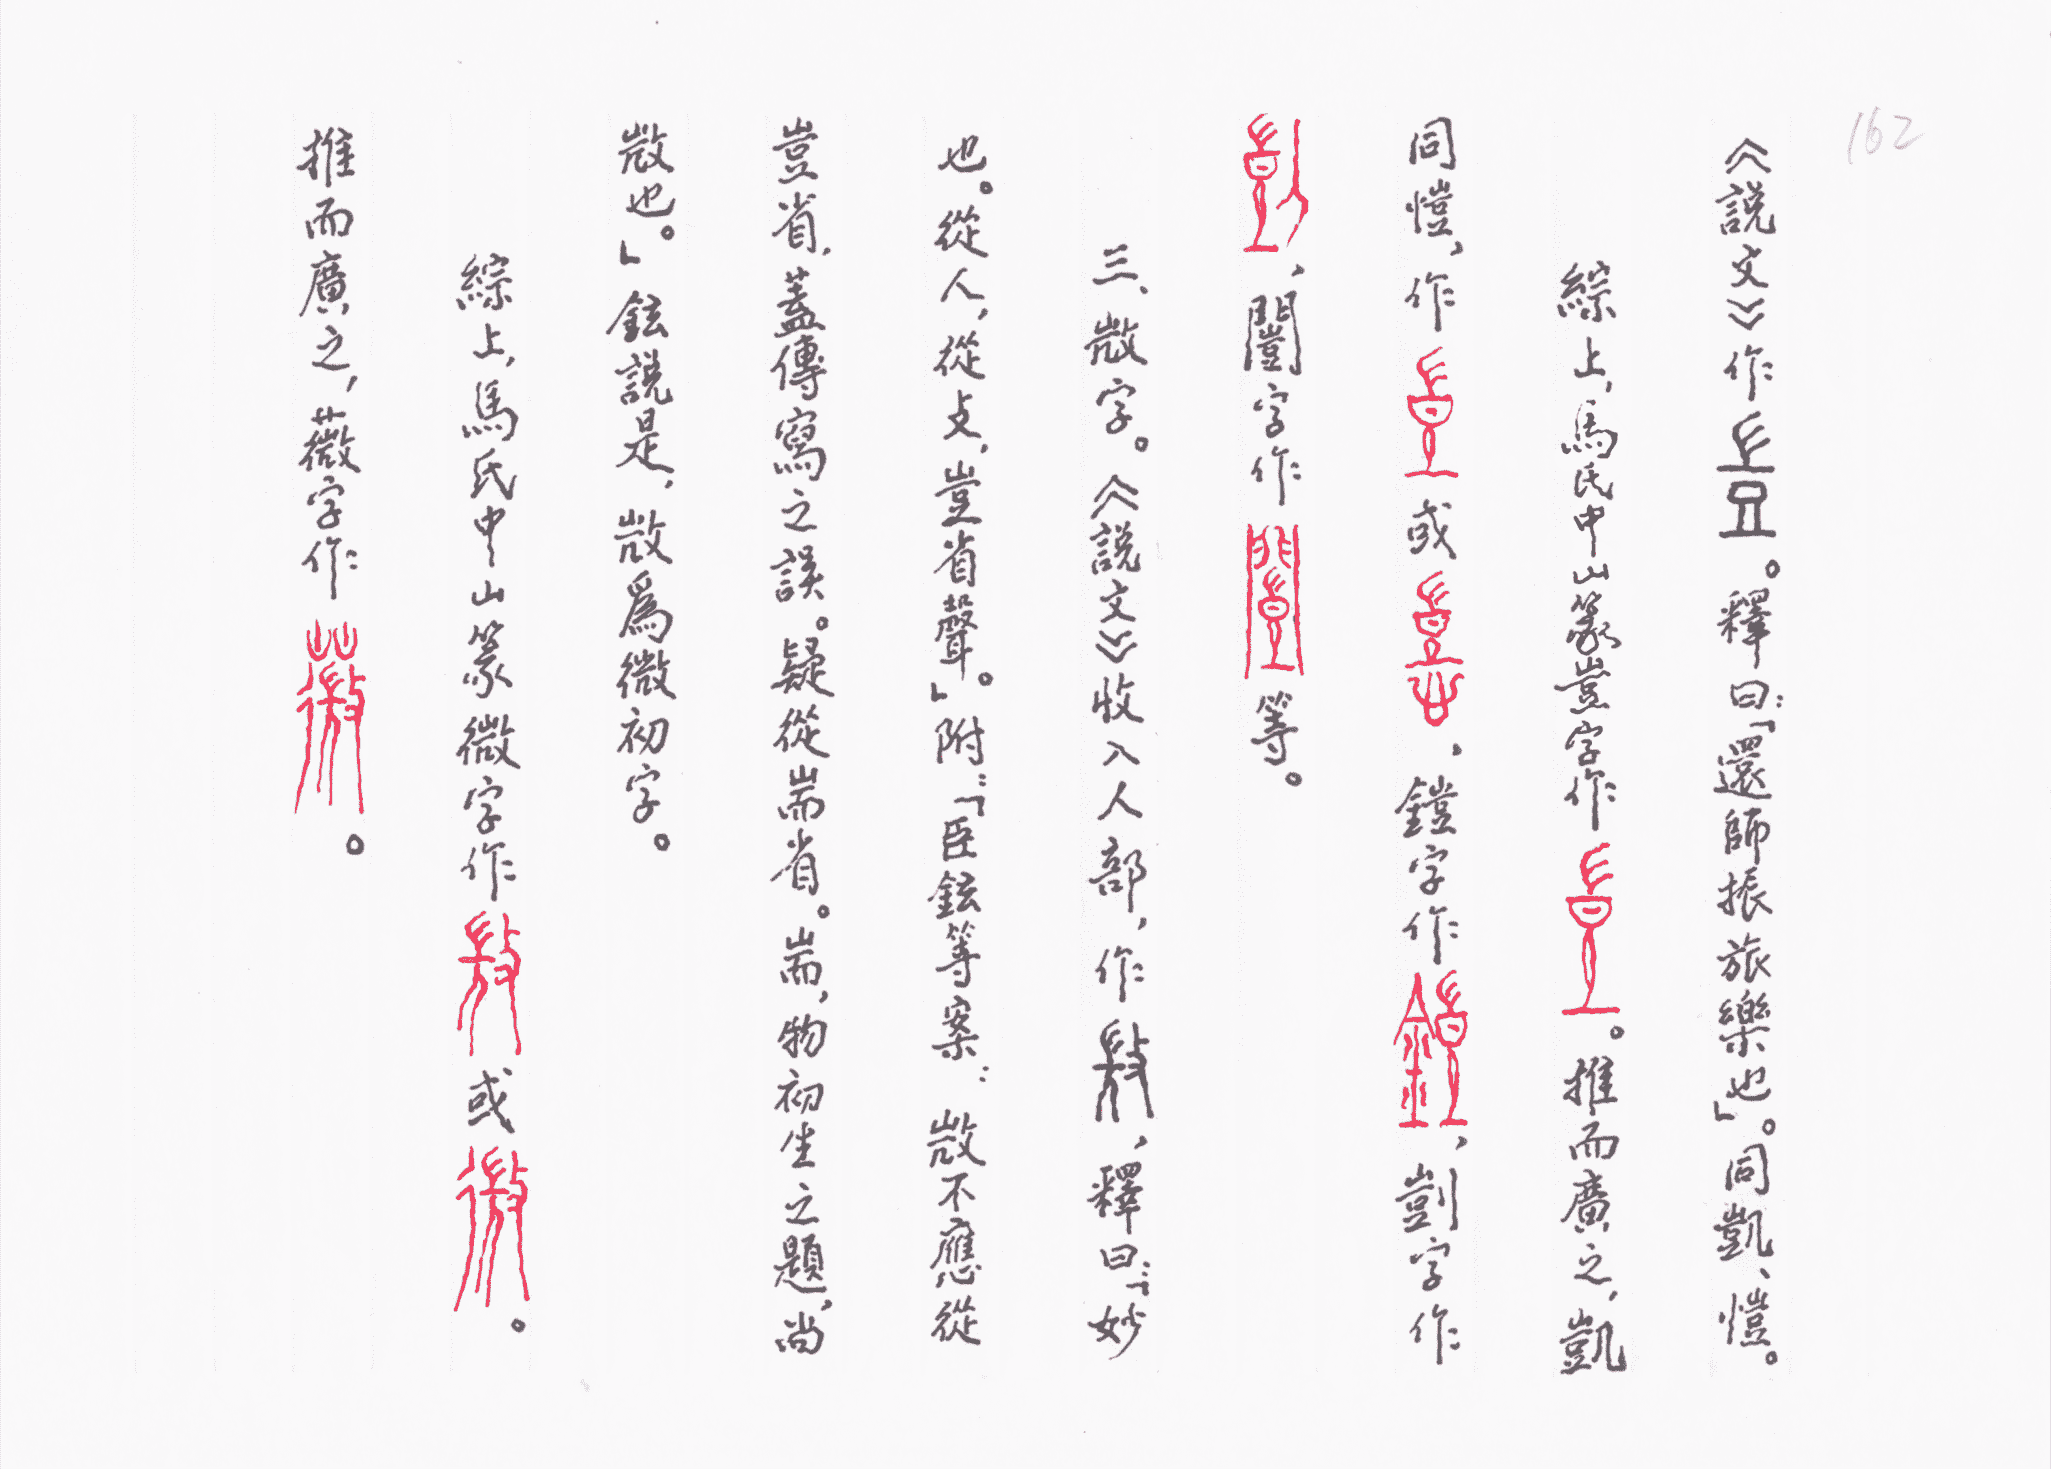 162
《説文》作。釋曰:「還師振旅樂也」。同凱、愷。
綜上,馬氏中山篆豈字作。推而廣之,凱
同愷,作或,鎧字作,剴字作
,闓字作等。
三、㪿字。《説文》收入人部,作,釋曰:「妙
也。從人,從攴,豈省聲。」附:「臣鉉等案:㪿不應從
豈省,蓋傳寫之誤。疑從耑省。耑,物初生之題,尚
㪿也。」鉉説是,㪿爲微初字。
綜上,馬氏中山篆微字作或。
推而廣之,薇字作。